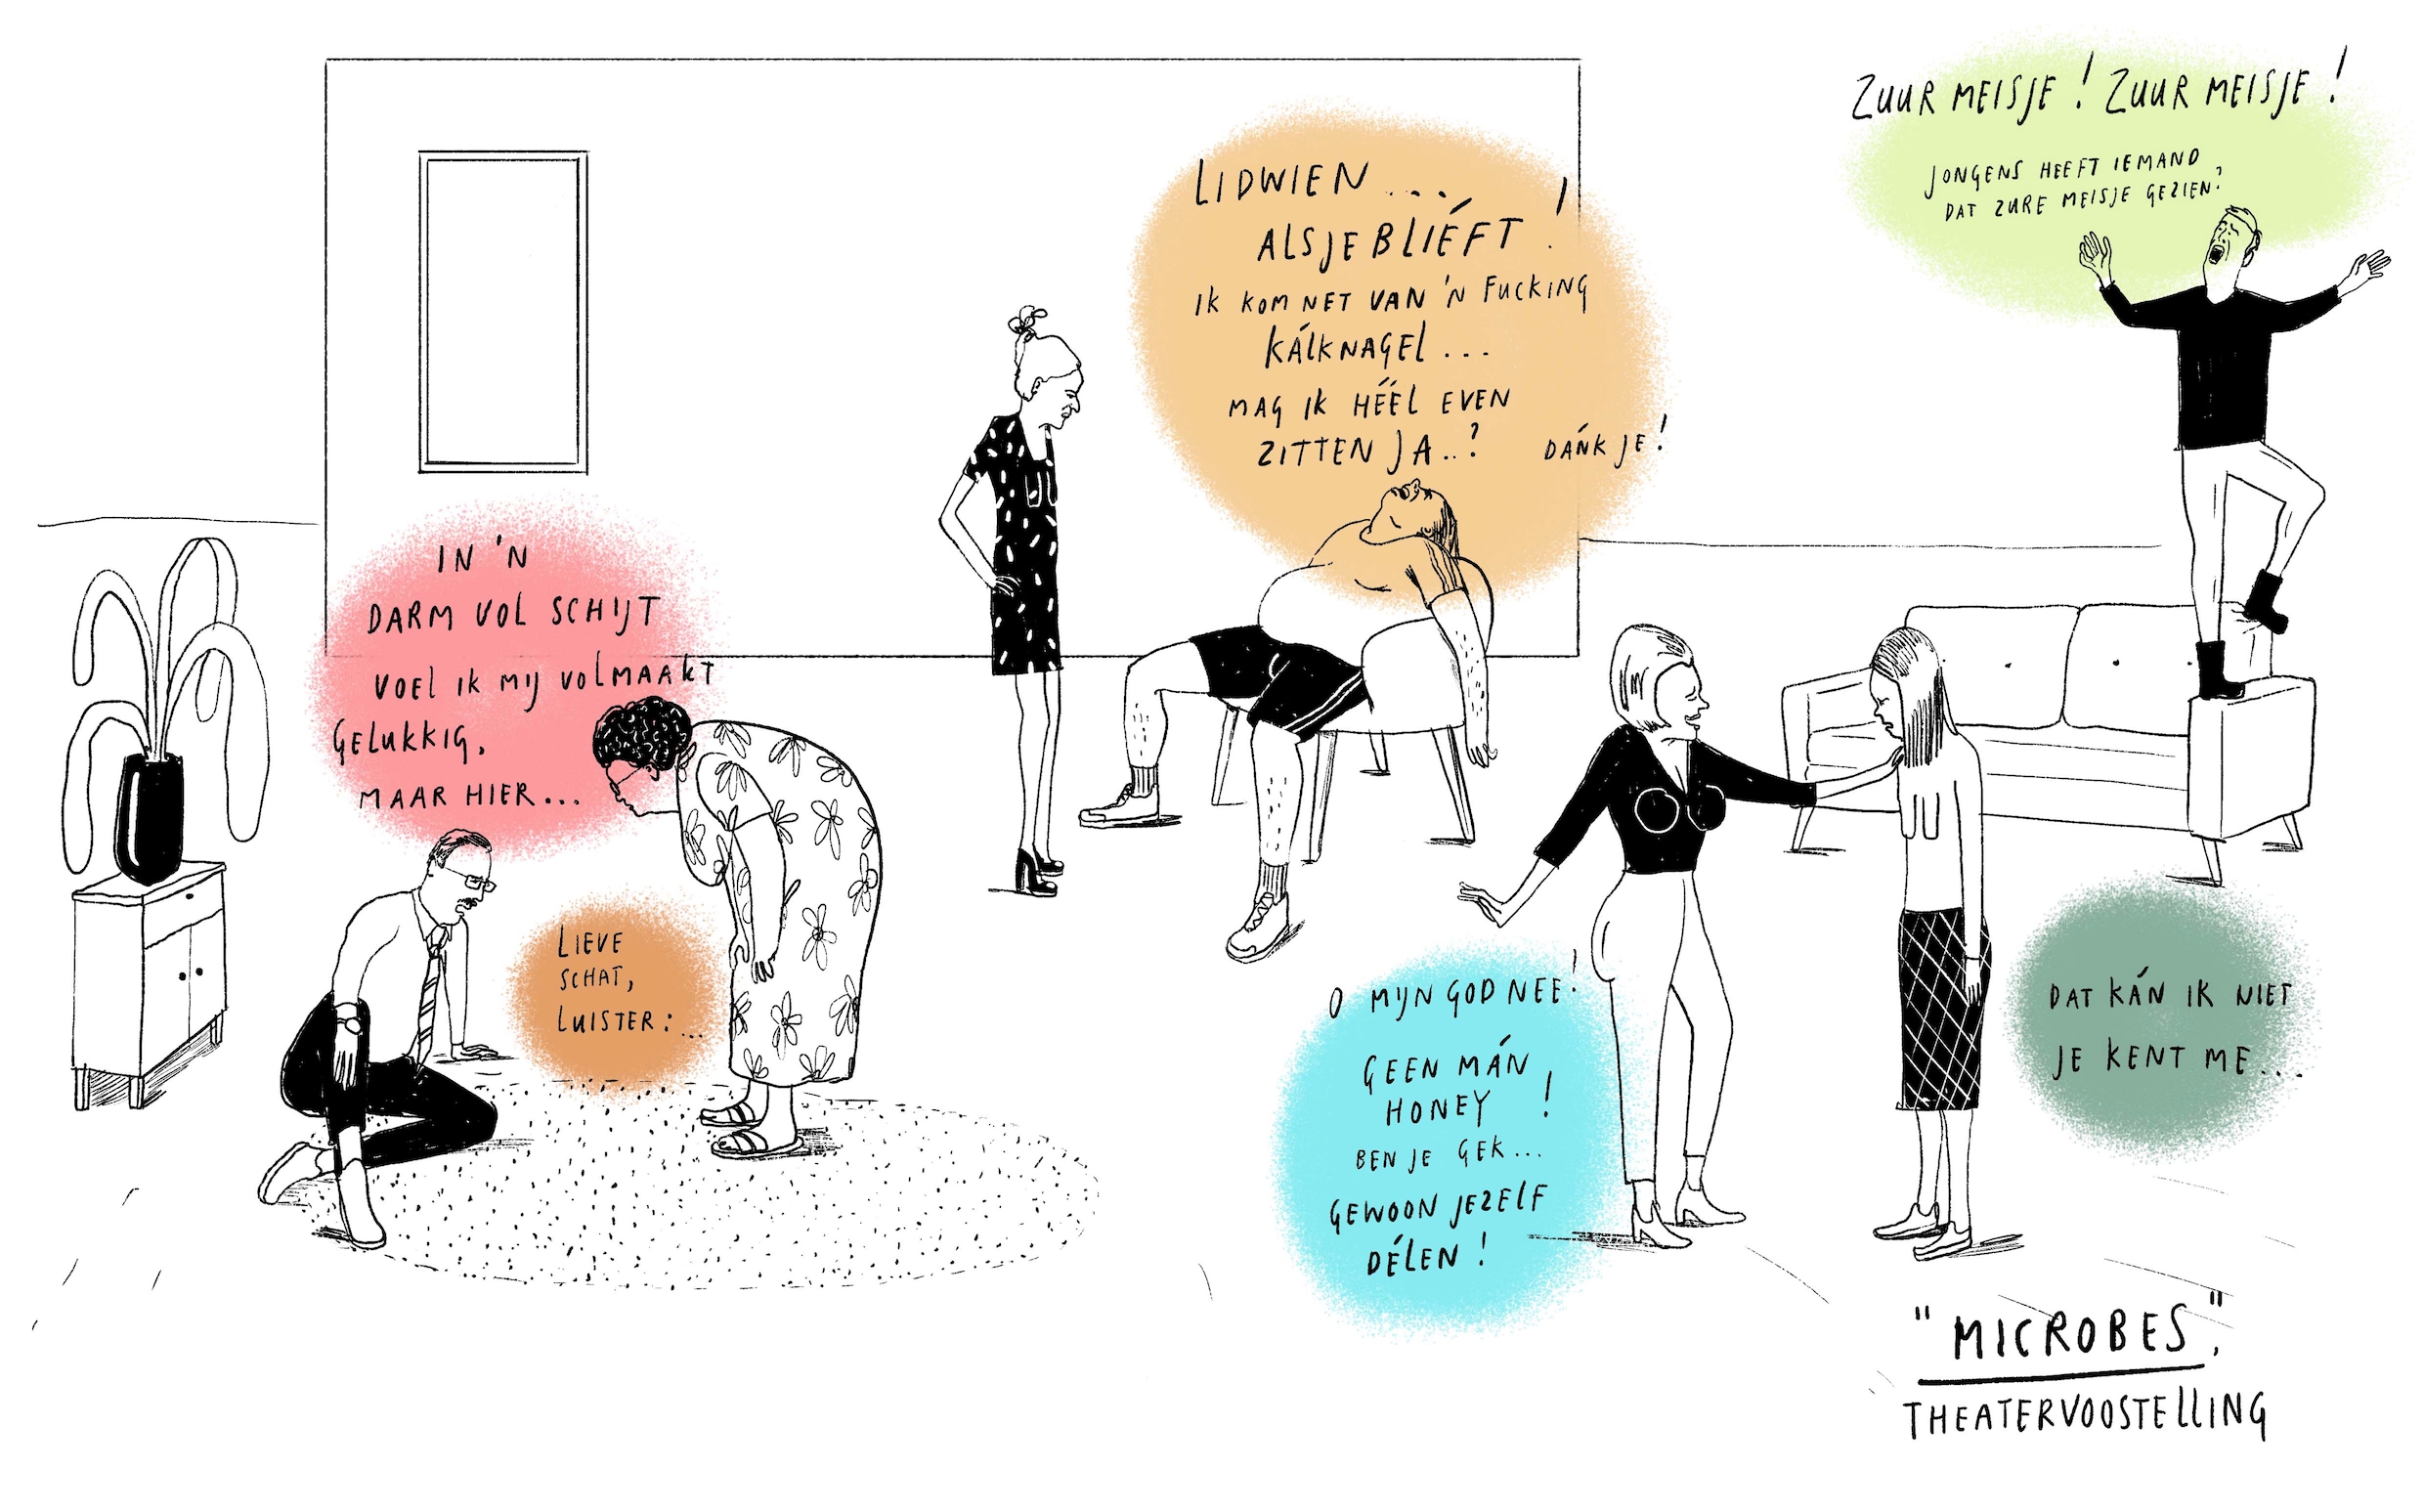 ZUUR MEISJE! ZUUR MEISJE!
JONGENS HEEFT IEMAND
DAT ZURE MEISJE GEZIEN?
LIDWIEN....
ALSJEBLIÉFT!
IK KOM NET VAN 'N FUCKING
KÁLKNAGEL...
MAG IK HÉÉL EVEN
ZITTEN JA..?
DÁNK JE!
IN 'N
DARM VOL SCHIJT
VOEL IK MIJ VOLMAAKT
GELUKKIG,
MAAR HIER...
LIEVE
SCHAT,
LUISTER:...
O MIJN GOD NEE!
GEEN MÁN
HONEY!
BEN JE GEK...
GEWOON JEZELF
DÉLEN!
DAT KÁN IK NIET
JE KENT ME...
"MICROBES",
THEATERVOOSTELLING